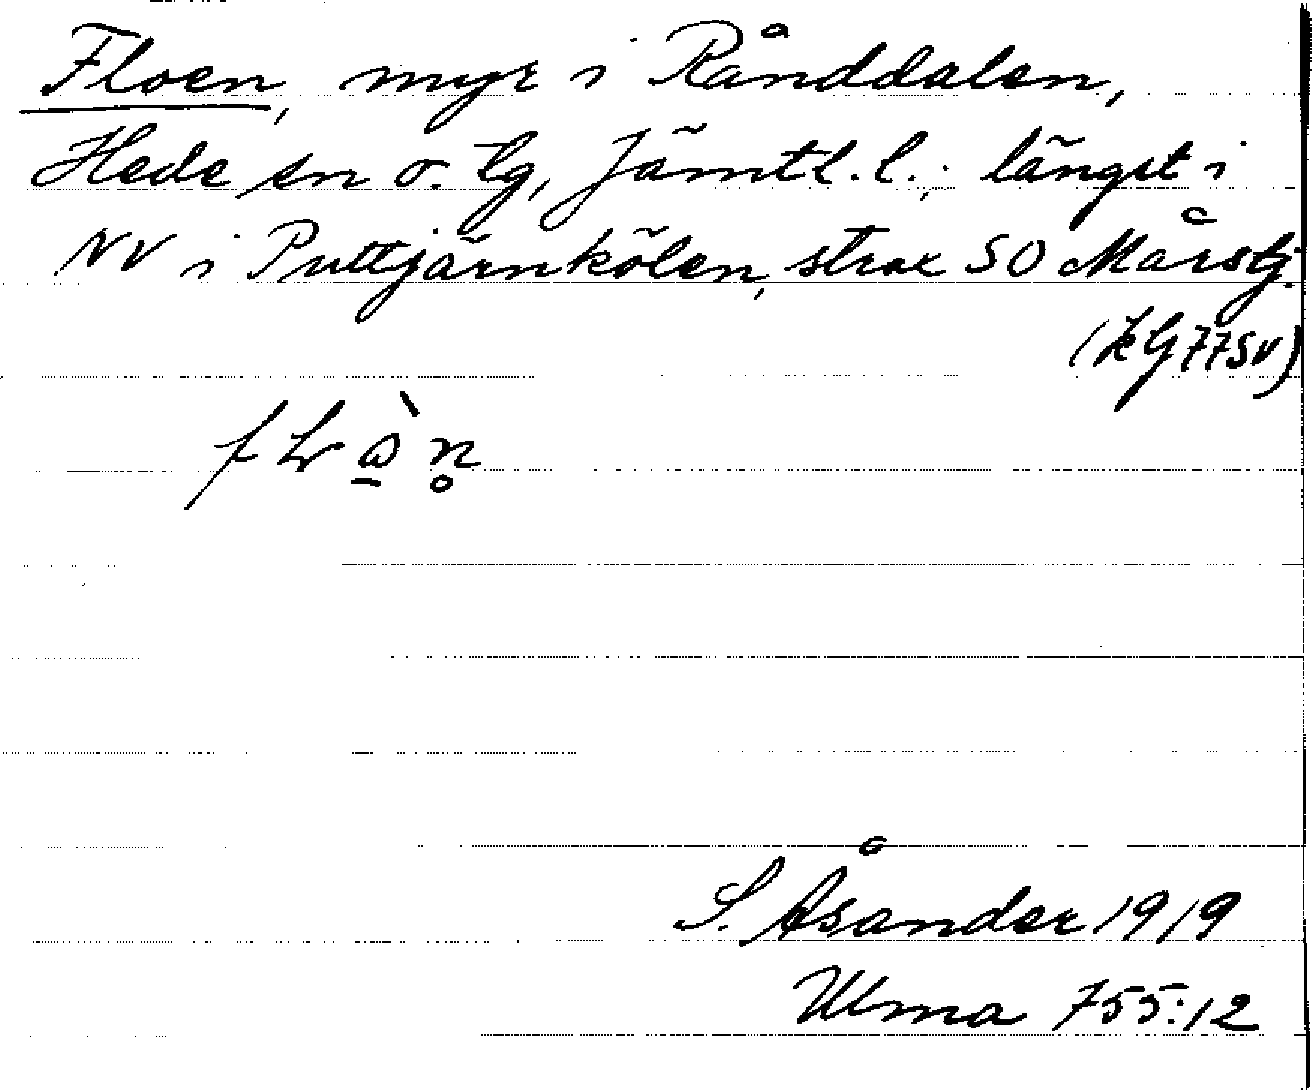 Floen, myr i Rånddalen,
Hede sn o. tg, Jämtl. l.; längst i
NV i Puttjärnkölen, strax SO Mårstj.
(kG77SV)
S. Åsander 1919
Ulma 755:12